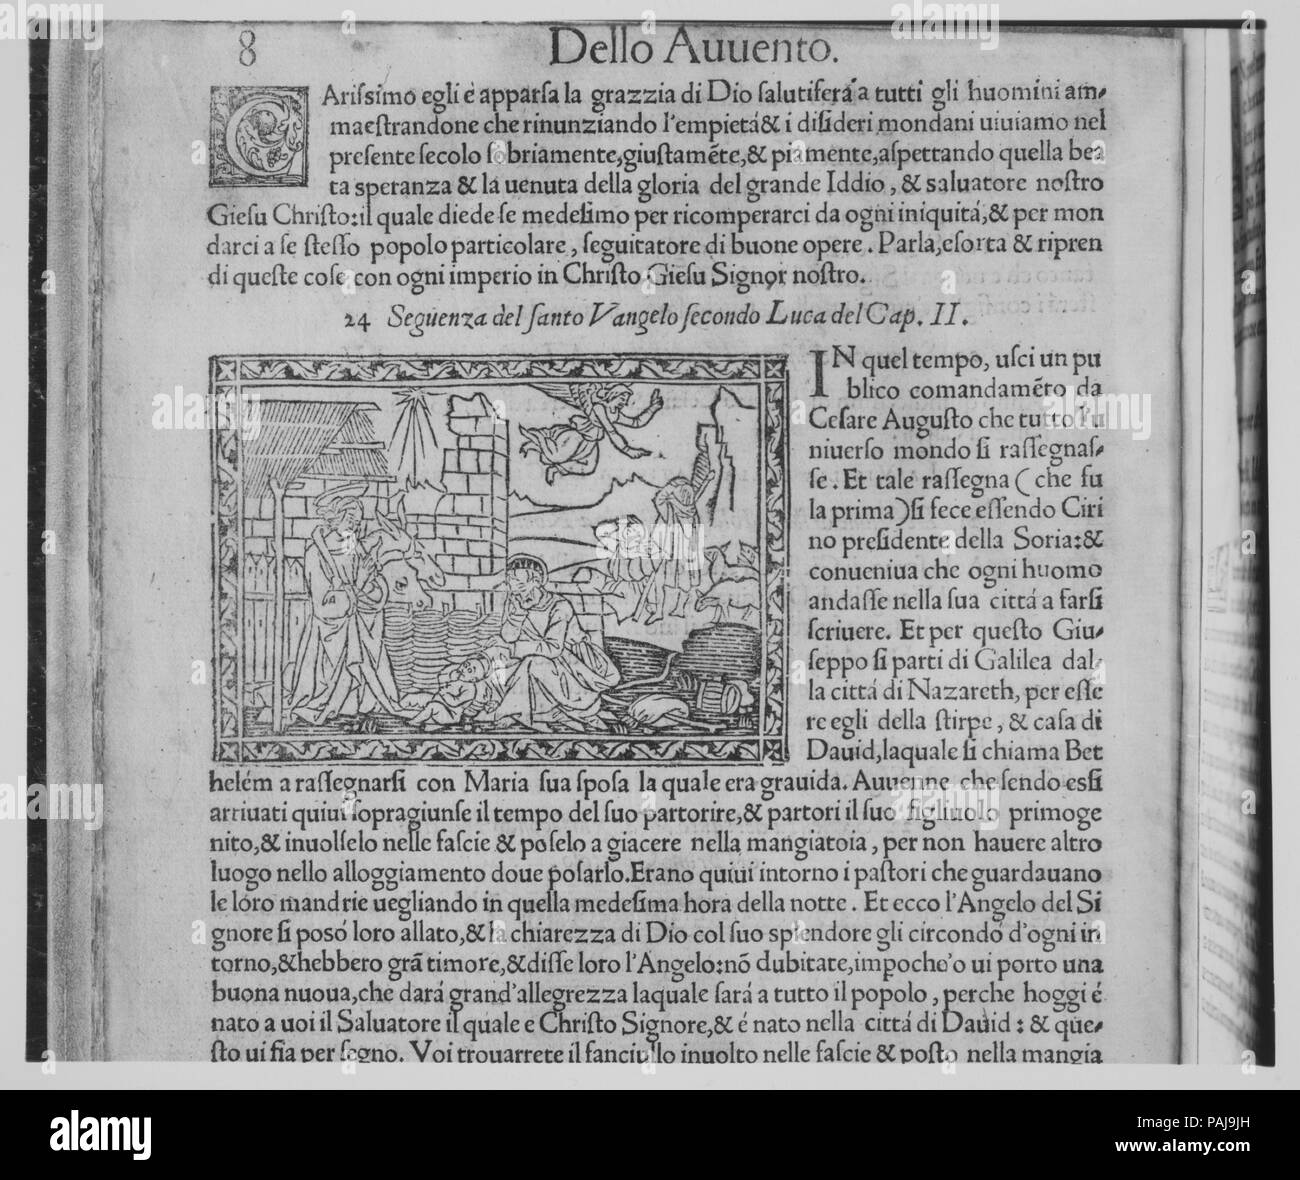 8
Dello Auuento.
CArissimo egli è apparsa la grazzia di Dio salutiferá a tutti gli huomini am-
maestrandone che rinunziando l'empietá & i disideri mondani uiuiamo nel
presente secolo sobriamente, giustamẽte, & piamente, aspettando quella bea
ta speranza & la uenuta della gloria del grande Iddio, & saluatore nostro
Giesu Christo: il quale diede se medesimo per ricomperarci da ogni iniquitá, & per mon
darci a se stesso popolo particolare, seguitatore di buone opere. Parla, esorta & ripren
di queste cose con ogni imperio in Christo Giesu Signor nostro.
24 Seguenza del santo Vangelo secondo Luca del Cap. II.
IN quel tempo, usci un pu
blico comandamẽto da
Cesare Augusto che tutto l'u
niuerso mondo si rassegnas-
se. Et tale rassegna (che fu
la prima) si fece essendo Ciri
no presidente della Soria: &
conueniua che ogni huomo
andasse nella sua cittá a farsi
scriuere. Et per questo Giu-
seppo si parti di Galilea dal-
la cittá di Nazareth, per esse
re egli della stirpe, & casa di
Dauid, laquale si chiama Bet
helém a rassegnarsi con Maria sua sposa la quale era grauida. Auuenne che sendo essi
arriuati quiui sopragiunse il tempo del suo partorire, & partori il suo figliuolo primoge
nito, & inuolselo nelle fascie & poselo a giacere nella mangiatoia, per non hauere altro
luogo nello alloggiamento doue posarlo. Erano quiui intorno i pastori che guardauano
le loro mandrie uegliando in quella medesima hora della notte. Et ecco l'Angelo del Si
gnore si posó loro allato, & la chiarezza di Dio col suo splendore gli circondó d'ogni in
torno, & hebbero grã timore, & disse loro l'Angelo: nõ dubitate, impoche'o ui porto una
buona nuoua, che dará grand'allegrezza laquale sará a tutto il popolo, perche hoggi é
nato a uoi il Saluatore il quale e Christo Signore, & é nato nella cittá di Dauid: & que-
sto ui fia per segno. Voi trouarrete il fanciullo inuolto nelle fascie & posto nella mangia
alamy
Image ID: PAJ9JH
www.alamy.com